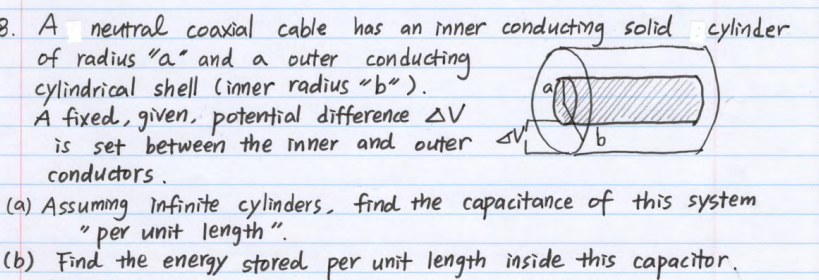 8. A neutral coaxial cable has an inner conducting solid cylinder
of radius "a" and a outer conducting
cylindrical shell (inner radius "b").
A fixed, given, potential difference ΔV
is set between the inner and outer
conductors.
a
ΔV
b
(a) Assuming infinite cylinders, find the capacitance of this system
"per unit length".
(b) Find the energy stored per unit length inside this capacitor.